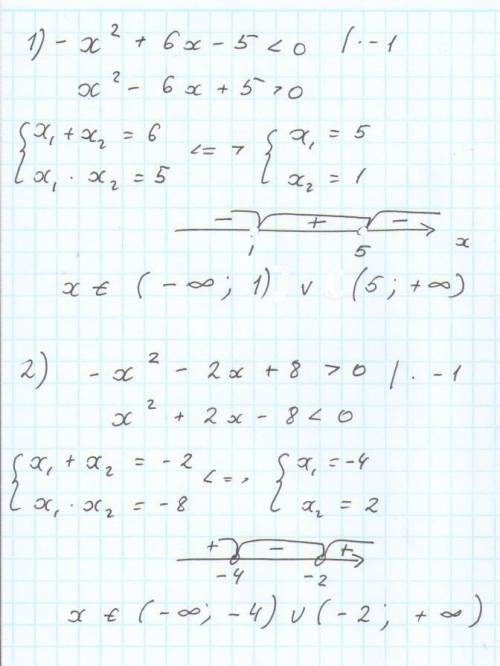 1) - x² + 6x - 5 < 0 / · -1
x² - 6x + 5 > 0
{ x₁ + x₂ = 6 <=> { x₁ = 5
x₁ · x₂ = 5 x₂ = 1
- + -
1 5 x
x ∈ (-∞; 1) ∪ (5; +∞)
2) - x² - 2x + 8 > 0 / · -1
x² + 2x - 8 < 0
{ x₁ + x₂ = -2 <=> { x₁ = -4
x₁ · x₂ = -8 x₂ = 2
+ - +
-4 -2
x ∈ (-∞; -4) ∪ (-2; +∞)